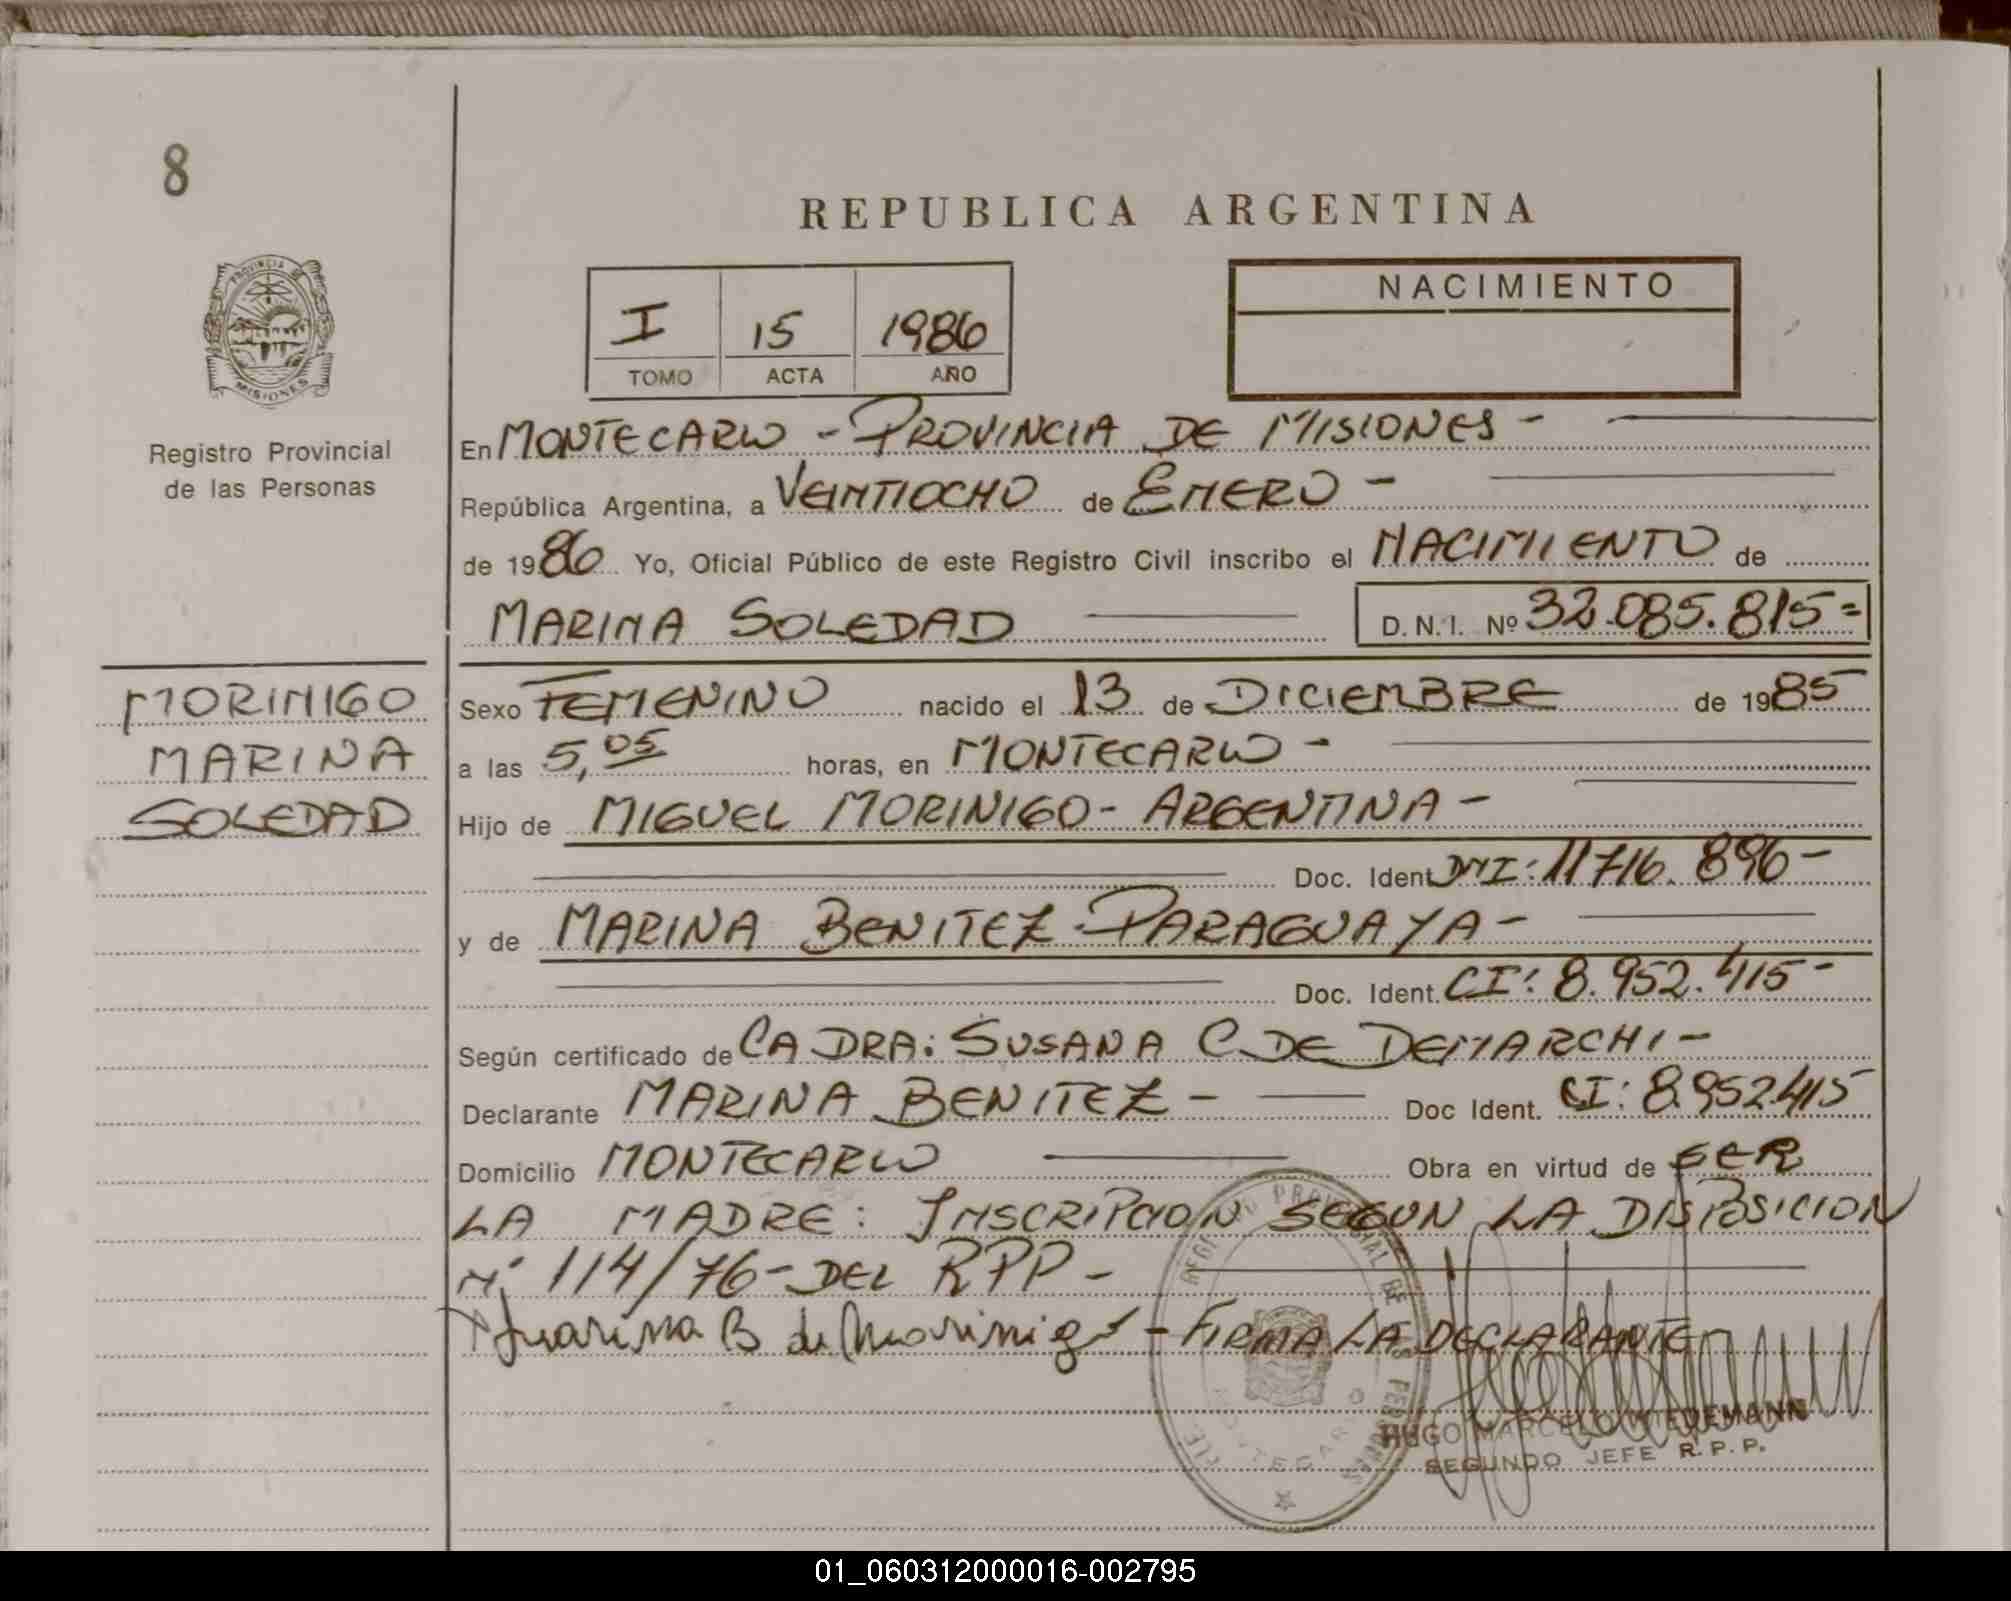 8
REPUBLICA ARGENTINA
PROVINCIA DE
MISIONES
Registro Provincial
de las Personas
I 15 1986
TOMO ACTA AÑO
NACIMIENTO
En MONTECARLO - PROVINCIA DE MISIONES -
República Argentina, a VEINTIOCHO de ENERO -
de 1986 Yo, Oficial Público de este Registro Civil inscribo el NACIMIENTO de
MARINA SOLEDAD D.N.I. Nº 32.085.815=
MORINIGO
MARINA
SOLEDAD
Sexo FEMENINO nacido el 13 de DICIEMBRE de 1985
a las 5,05 horas, en MONTECARLO -
Hijo de MIGUEL MORINIGO - ARGENTINA -
Doc. Ident. DNI: 11716.896 -
y de MARINA BENITEZ - PARAGUAYA -
Doc. Ident. CI: 8.952.415 -
Según certificado de LA DRA: SUSANA C. DE DEMARCHI -
Declarante MARINA BENITEZ - Doc Ident. CI: 8.952415
Domicilio MONTECARLO Obra en virtud de SER
LA MADRE: INSCRIPCION SEGUN LA DISPOSICION
Nº 114/76 - DEL RPP -
Marina B de Morinigo - FIRMA LA DECLARANTE
REGISTRO PROVINCIAL DE LAS PERSONAS
MONTECARLO
HUGO MARCELO WIEDEMANN
SEGUNDO JEFE R.P.P.
01_060312000016-002795